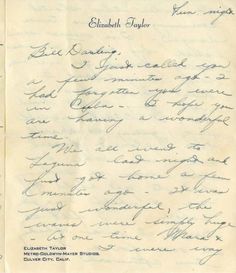 Sun. night
Elizabeth Taylor
Bill Darling,
I just called you
a few minutes ago - I
had forgotten you were
in Cuba - I hope you
are having a wonderful
time.
We all went to
Laguna last night and
just got home a few
minutes ago - it was
just wonderful, the
waves were simply huge
At one time Mara &
I were way
ELIZABETH TAYLOR
METRO-GOLDWYN-MAYER STUDIOS,
CULVER CITY, CALIF.